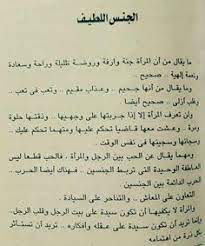 الجنس اللطيف
ما يقال من أن المرأة جنة وارفة وروضة ظليلة وراحة وسعادة
ونعمة إلهية .. صحيح ..
وما يقال من أنها جحيم .. وعذاب مقيم .. وتعب فى تعب ..
وقلب أزلى .. صحيح أيضا
ولن تعرف المرأة إلا إذا جربتها على وجهيها .. وذقتها حلوة
ومرة .. وعشت معها قاضيا تحكم عليها ومتهما تحكم عليك ..
وسجانها وسجينها فى نفس الوقت ..
ومهما يقال عن الحب بين الرجل والمرأة .. فالحب قطعا ليس
العاطفة الوحيدة التى تربط الجنسين .. فهناك أيضا الحرب ..
الحرب الدائمة بين الجنسين ..
التعاون على المعاش .. والتناحر على السيادة ..
والمرأة لا يكفيها أن تكون سيدة على بيت الرجل وقلب الرجل ..
وإنما تريد أن تكون سيدة على عقله وأفكاره .. تريد أن تستأثر
بكل ذرة من اهتمامه